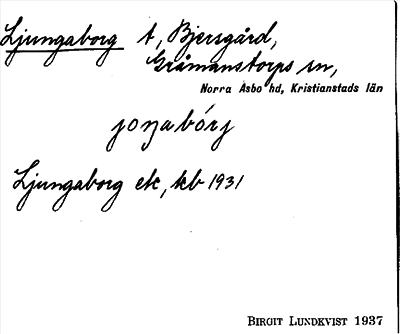 Ljungaborg t, Bjersgård,
Gråmanstorps sn,
Norra Åsbo hd, Kristianstads län
joŋabórj
Ljungaborg etc, kb 1931
BIRGIT LUNDKVIST 1937